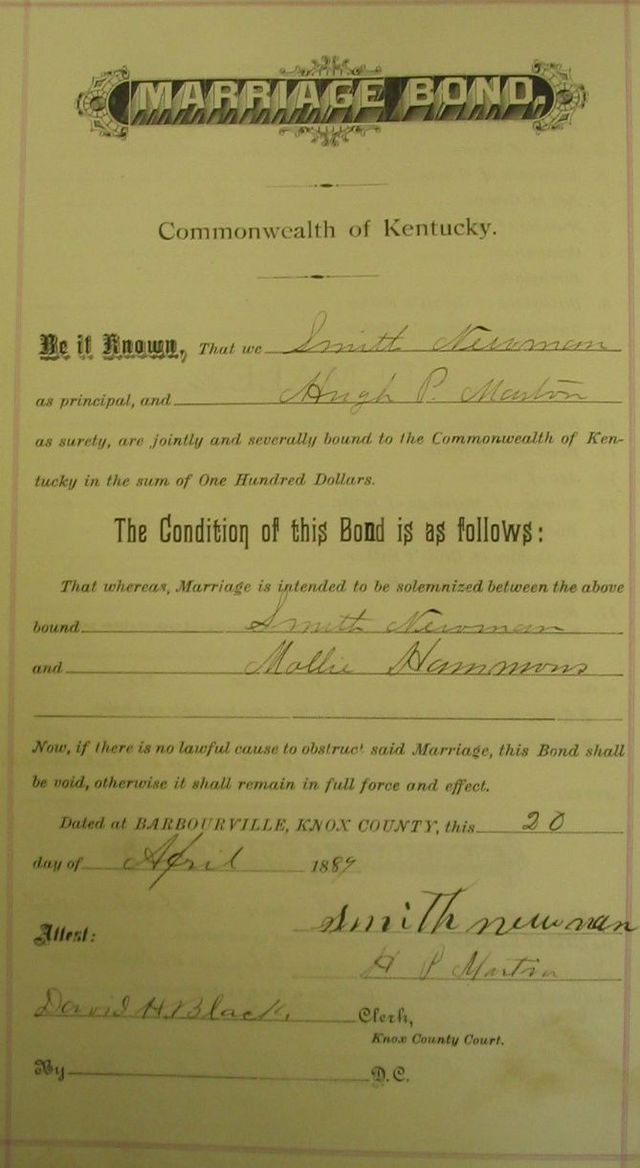 MARRIAGE BOND.
Commonwealth of Kentucky.
Be it Known, That we Smith Newman
as principal, and Hugh P. Martin
as surety, are jointly and severally bound to the Commonwealth of Ken-
tucky in the sum of One Hundred Dollars.
The Condition of this Bond is as follows:
That whereas, Marriage is intended to be solemnized between the above
bound Smith Newman
and Mollie Hammons
Now, if there is no lawful cause to obstruct said Marriage, this Bond shall
be void, otherwise it shall remain in full force and effect.
Dated at BARBOURVILLE, KNOX COUNTY, this 20
day of April 1889
Attest: Smith newman
H P Martin
David H. Black, Clerk,
Knox County Court.
By D.C.